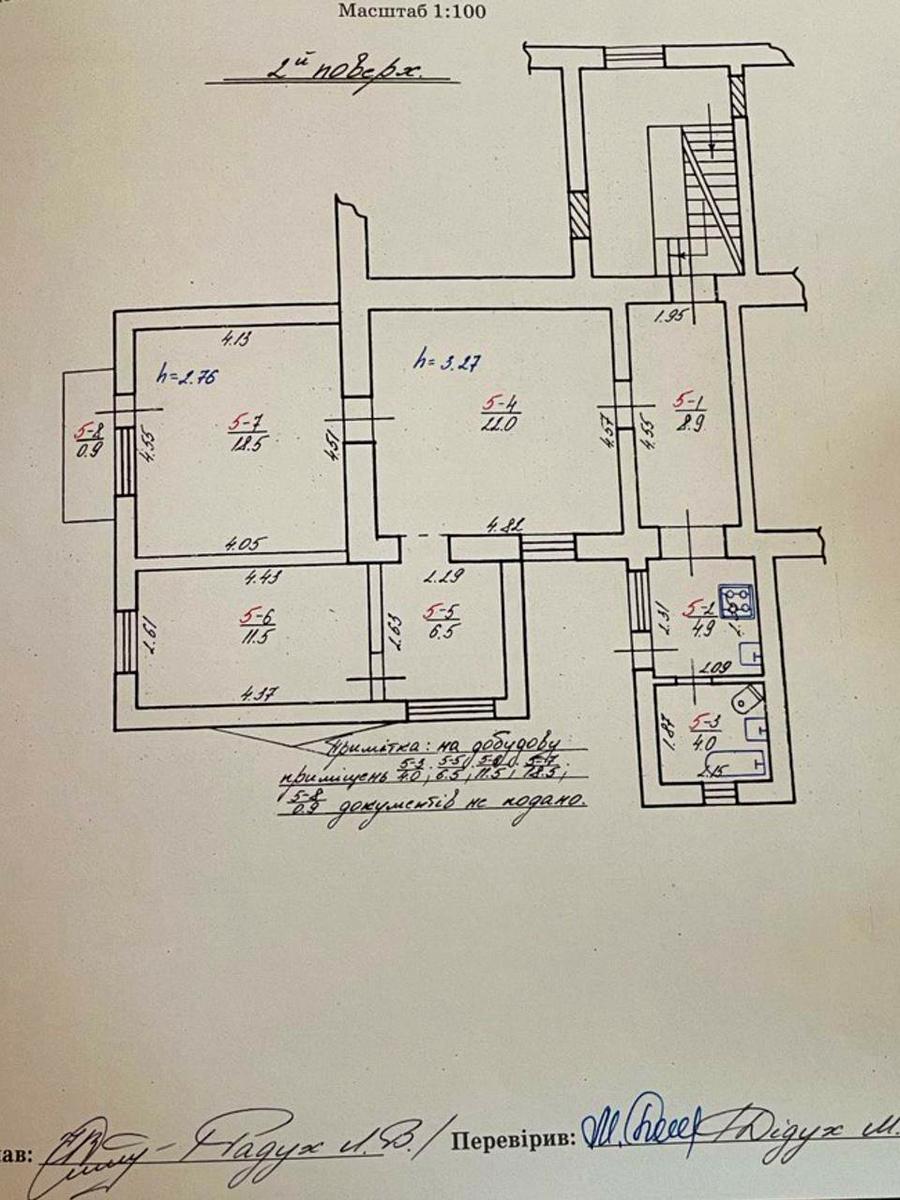 Масштаб 1:100
2й поверх.
1.95
4.13
h=2.76
h=3.27
5-8
0.9
4.55
5-7
18.5
4.51
5-4
22.0
4.57
4.55
5-1
8.9
4.05
4.82
4.43
2.29
2.61
5-6
11.5
2.63
5-5
6.5
2.31
5-2
4.9
2.09
4.37
1.87
5-3
4.0
2.15
Примітка: на добудову
приміщень 5-3/4.0, 5-5/6.5, 5-6/11.5, 5-7/18.5,
5-8/0.9 документів не подано.
ав: Радух Л.В./ Перевірив: Дідух М.